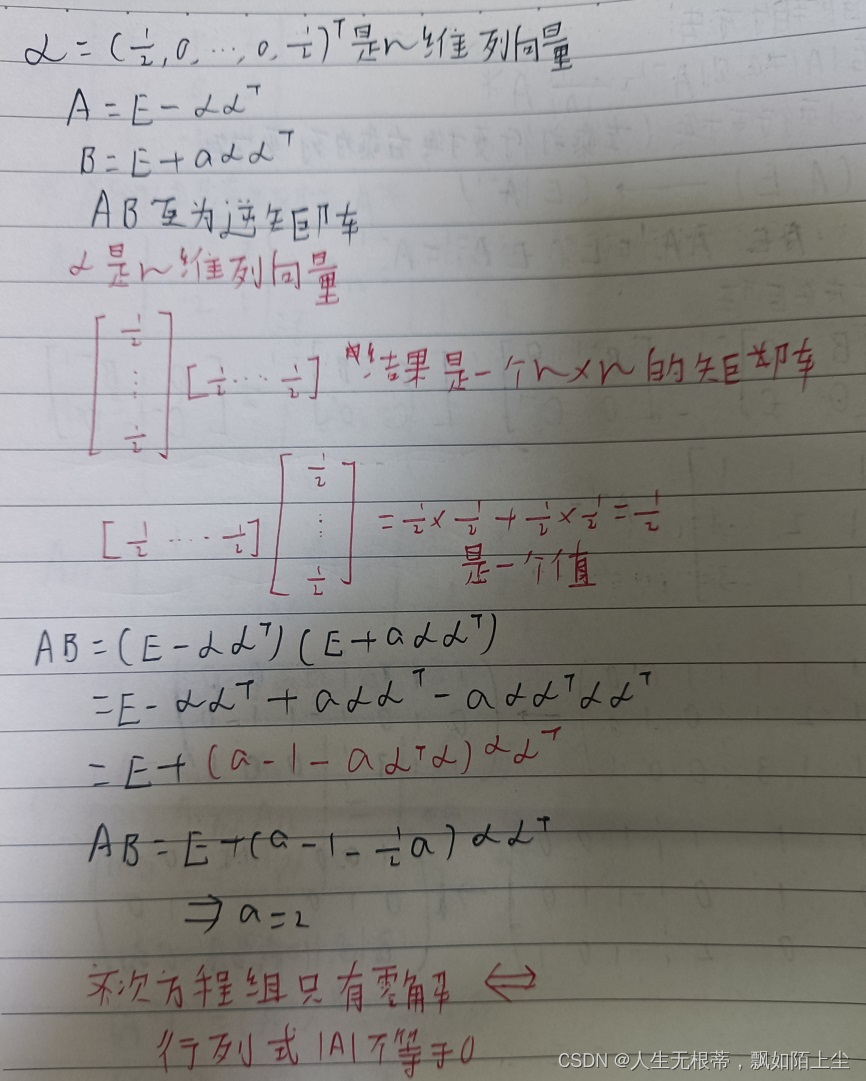 α = (1/2, 0, …, 0, 1/2)ᵀ 是n维列向量
A = E - ααᵀ
B = E + aααᵀ
AB互为逆矩阵
α是n维列向量
[1/2 ⋮ 1/2] [1/2 … 1/2] 结果是一个n×n的矩阵
[1/2 … 1/2] [1/2 ⋮ 1/2] = 1/2 × 1/2 + 1/2 × 1/2 = 1/2
是一个值
AB = (E - ααᵀ)(E + aααᵀ)
= E - ααᵀ + aααᵀ - aααᵀααᵀ
= E + (a - 1 - aαᵀα)ααᵀ
AB = E + (a - 1 - 1/2 a)ααᵀ
⇒ a = 2
次方程组只有零解 ⇔
行列式|A|不等于0
CSDN @人生无根蒂，飘如陌上尘